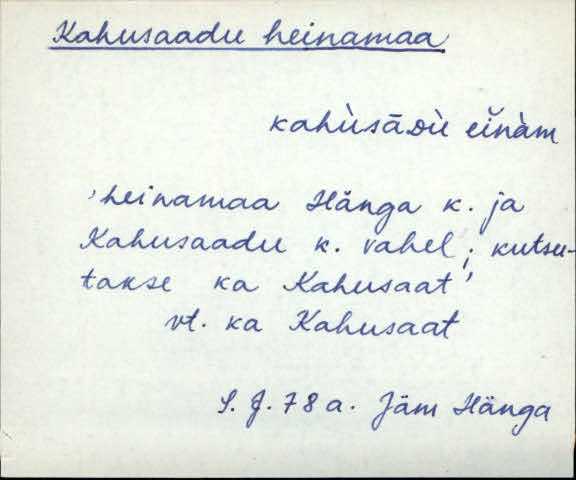 Kahusaadu heinamaa
kahùsāᴅù eĭnàm
'heinamaa Hänga k. ja
Kahusaadu k. vahel; kutsu-
takse ka Kahusaat'
vt. ka Kahusaat
S. J. 78 a. Jäm Hänga